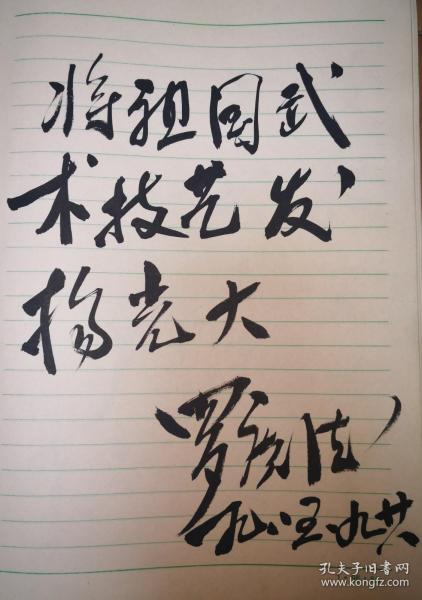 将祖国武
术技艺发
扬光大
孔夫子旧书网
www.kongfz.com